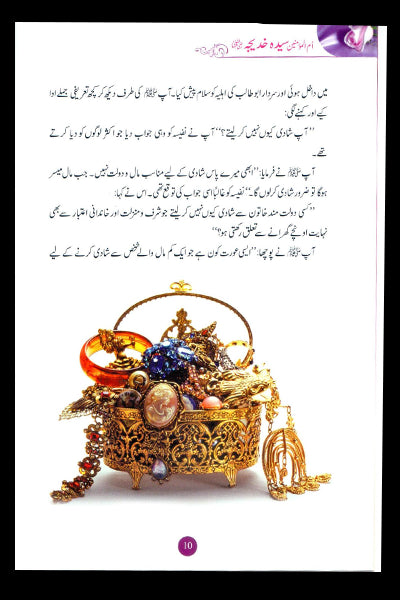 اُم المؤمنین سیدہ خدیجہ رضی اللہ عنہا
میں داخل ہوئی اور سردار ابوطالب کی اہلیہ کو سلام پیش کیا۔ آپ ﷺ کی طرف دیکھ کر کچھ تعریفی جملے ادا
کیے اور کہنے لگی:
’’آپ شادی کیوں نہیں کر لیتے؟‘‘ آپ نے نفیسہ کو وہی جواب دیا جو اکثر لوگوں کو دیا کرتے
تھے۔
آپ ﷺ نے فرمایا: ’’ابھی میرے پاس شادی کے لیے مناسب مال و دولت نہیں۔ جب مال میسر
ہو گا تو ضرور شادی کر لوں گا۔‘‘ نفیسہ کو غالباً اسی جواب کی توقع تھی۔ اس نے کہا:
’’کسی دولت مند خاتون سے شادی کیوں نہیں کر لیتے جو شرف و منزلت اور خاندانی اعتبار سے بھی
نہایت اونچے گھرانے سے تعلق رکھتی ہو؟‘‘
آپ ﷺ نے پوچھا: ’’ایسی عورت کون ہے جو ایک کم مال والے شخص سے شادی کرنے کے لیے
10